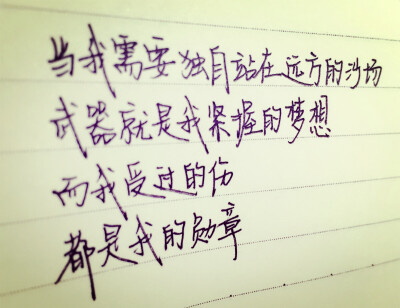 当我需要独自站在远方的沙场
武器就是我紧握的梦想
而我受过的伤
都是我的勋章